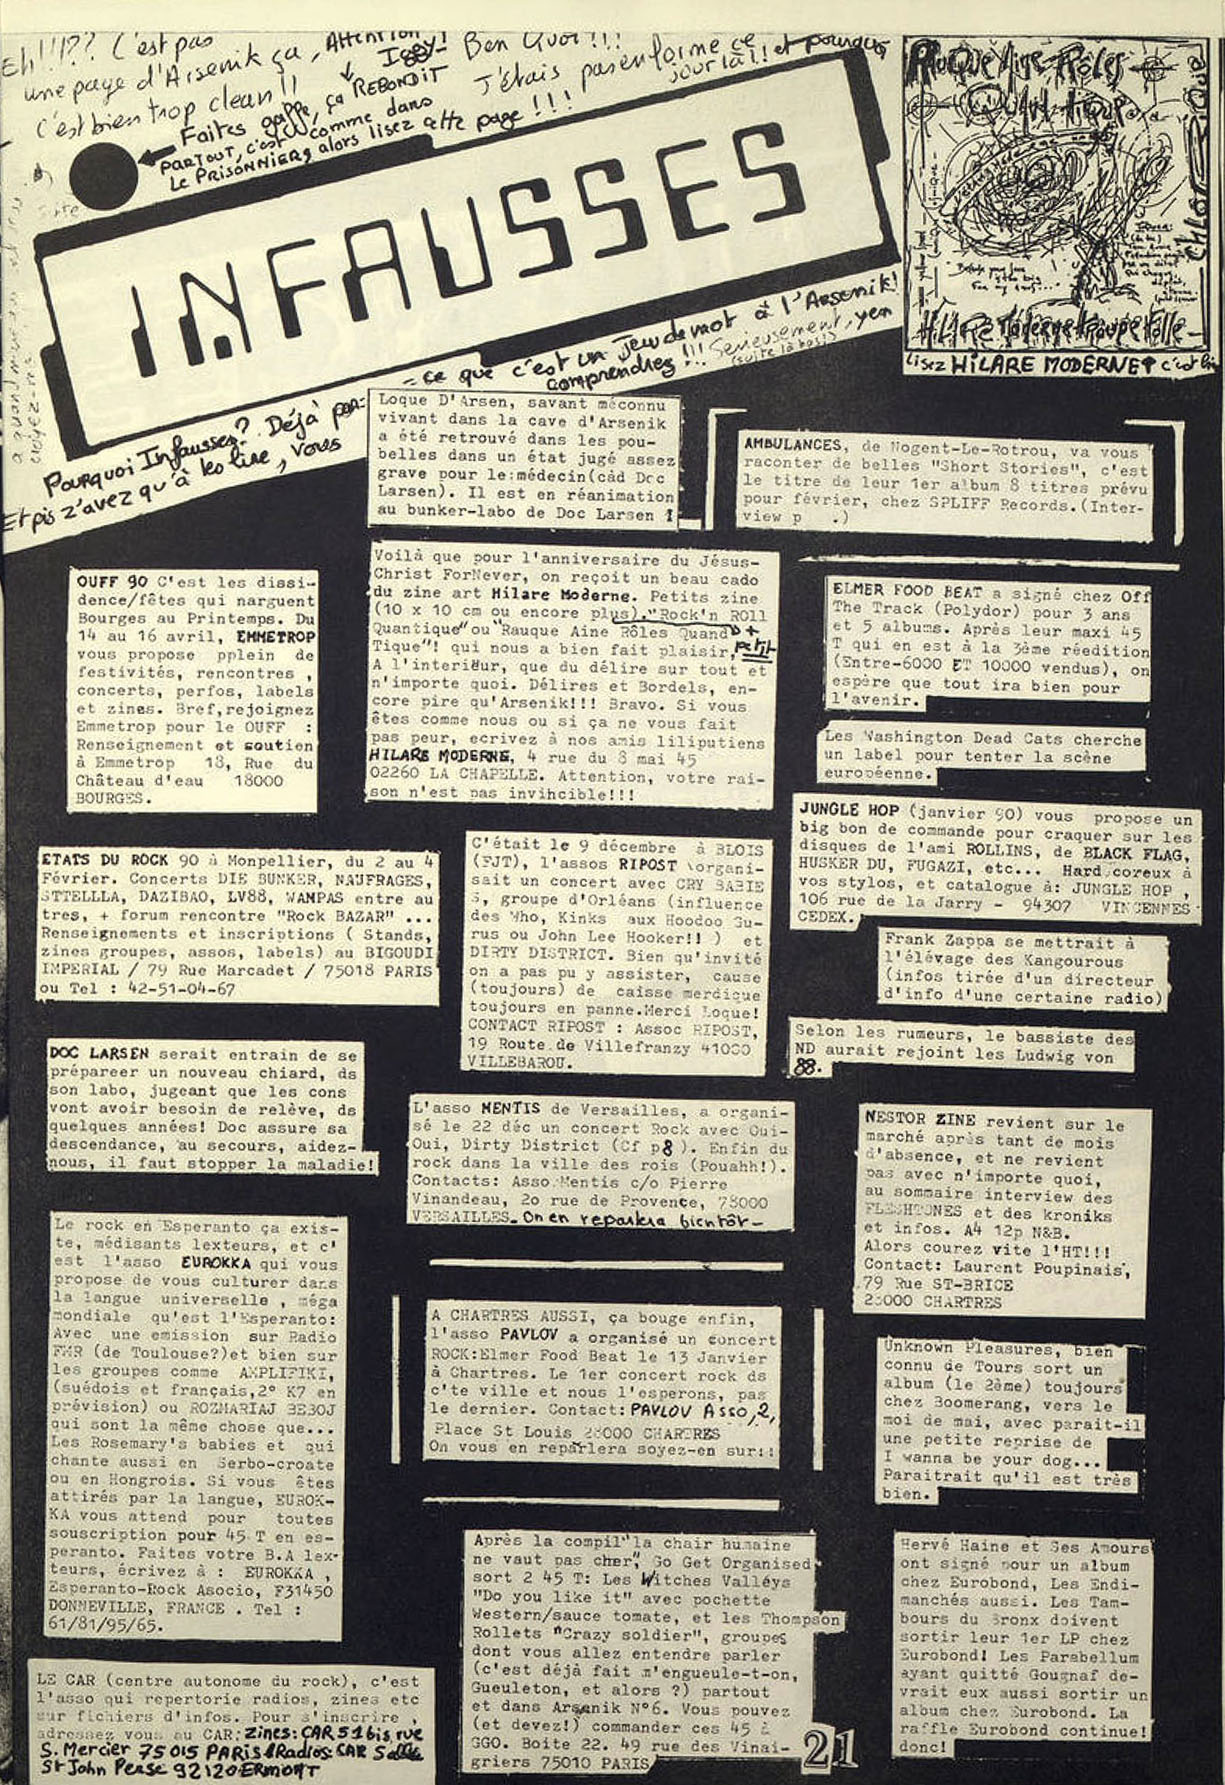 Eh!!!?? C'est pas
une page d'Arsenik ça,
c'est bien trop clean!!
Attention
Iggy!
ça REBONDIT
Ben Quoi!!!
J'étais pas en forme ce
jour là!! et pourquoi
Faites gaffe,
PARTOUT, c'est comme dans
Le PRISONNIER, alors lisez cette page!!!
INFAUSSES
Pourquoi Infausses? Déjà par-
ce que c'est un jeu de mot à l'Arsenik!
comprendrez!!! Sérieusement, yen
(suite là bas)
Et pis z'avez qu'à les lire, vous
RAUQUE Aine Rôles
Hilare Moderne Troupe Folle
lisez HiLARE MODERNE
Loque D'Arsen, savant méconnu
vivant dans la cave d'Arsenik
a été retrouvé dans les pou-
belles dans un état jugé assez
grave pour le médecin(càd Doc
Larsen). Il est en réanimation
au bunker-labo de Doc Larsen !
AMBULANCES, de Nogent-Le-Rotrou, va vous
raconter de belles "Short Stories", c'est
le titre de leur 1er album 8 titres prévu
pour février, chez SPLIFF Records.(Inter-
view p .)
OUFF 90 C'est les dissi-
dence/fêtes qui narguent
Bourges au Printemps. Du
14 au 16 avril, EMMETROP
vous propose pplein de
festivités, rencontres ,
concerts, perfos, labels
et zines. Bref,rejoignez
Emmetrop pour le OUFF :
Renseignement et soutien
à Emmetrop 18, Rue du
Château d'eau 18000
BOURGES.
Voilà que pour l'anniversaire du Jésus-
Christ ForNever, on reçoit un beau cado
du zine art Hilare Moderne. Petits zine
(10 x 10 cm ou encore plus)."Rock'n ROll
+ petit
Quantique"ou"Rauque Aine Rôles Quand
Tique"! qui nous a bien fait plaisir.
A l'interiëur, que du délire sur tout et
n'importe quoi. Délires et Bordels, en-
core pire qu'Arsenik!!! Bravo. Si vous
êtes comme nous ou si ça ne vous fait
pas peur, ecrivez à nos amis liliputiens
HILARE MODERNE, 4 rue du 8 mai 45
02260 LA CHAPELLE. Attention, votre rai-
son n'est pas invihcible!!!
ELMER FOOD BEAT a signé chez Off
The Track (Polydor) pour 3 ans
et 5 albums. Après leur maxi 45
T qui en est à la 3ème réedition
(Entre-6000 ET 10000 vendus), on
espère que tout ira bien pour
l'avenir.
Les Washington Dead Cats cherche
un label pour tenter la scène
européenne.
JUNGLE HOP (janvier 90) vous propose un
big bon de commande pour craquer sur les
disques de l'ami ROLLINS, de BLACK FLAG,
HUSKER DU, FUGAZI, etc... Hard coreux à
vos stylos, et catalogue à: JUNGLE HOP ,
106 rue de la Jarry - 94307 VINCENNES
CEDEX.
ETATS DU ROCK 90 à Monpellier, du 2 au 4
Février. Concerts DIE BUNKER, NAUFRAGES,
STTELLLA, DAZIBAO, LV88, WAMPAS entre au
tres, + forum rencontre "Rock BAZAR" ...
Renseignements et inscriptions ( Stands,
zines groupes, assos, labels) au BIGOUDI
IMPERIAL / 79 Rue Marcadet / 75018 PARIS
ou Tel : 42-51-04-67
C'était le 9 décembre à BLOIS
(FJT), l'assos RIPOST organi-
sait un concert avec CRY BABIE
S, groupe d'Orléans (influence
des Who, Kinks aux Hoodoo Gu-
rus ou John Lee Hooker!! ) et
DIRTY DISTRICT. Bien qu'invité
on a pas pu y assister, cause
(toujours) de caisse merdique
toujours en panne.Merci Loque!
CONTACT RIPOST : Assoc RIPOST,
19 Route de Villefranzy 41000
VILLEBAROU.
Frank Zappa se mettrait à
l'élévage des Kangourous
(infos tirée d'un directeur
d'info d'une certaine radio)
Selon les rumeurs, le bassiste des
ND aurait rejoint les Ludwig von
88.
DOC LARSEN serait entrain de se
prépareer un nouveau chiard, ds
son labo, jugeant que les cons
vont avoir besoin de relève, ds
quelques années! Doc assure sa
descendance, au secours, aidez-
nous, il faut stopper la maladie!
L'asso MENTIS de Versailles, a organi-
sé le 22 déc un concert Rock avec Oui-
Oui, Dirty District (Cf p8 ). Enfin du
rock dans la ville des rois (Pouahh!).
Contacts: Asso Mentis c/o Pierre
Vinandeau, 2o rue de Provence, 78000
VERSAILLES. On en reparlera bientôt-
NESTOR ZINE revient sur le
marché après tant de mois
d'absence, et ne revient
pas avec n'importe quoi,
au sommaire interview des
FLESHTONES et des kroniks
et infos. A4 12p N&B.
Alors courez vite l'HT!!!
Contact: Laurent Poupinais,
79 Rue ST-BRICE
28000 CHARTRES
Le rock en Esperanto ça exis-
te, médisants lexteurs, et c'
est l'asso EUROKKA qui vous
propose de vous culturer dans
la langue universelle , méga
mondiale qu'est l'Esperanto:
Avec une emission sur Radio
FMR (de Toulouse?)et bien sur
les groupes comme AMPLIFIKI,
(suédois et français,2° K7 en
prévision) ou ROZMARIAJ BEBOJ
qui sont la même chose que...
Les Rosemary's babies et qui
chante aussi en Serbo-croate
ou en Hongrois. Si vous êtes
attirés par la langue, EUROK-
KA vous attend pour toutes
souscription pour 45 T en es-
peranto. Faites votre B.A lex-
teurs, écrivez à : EUROKKA ,
Esperanto-Rock Asocio, F31450
DONNEVILLE, FRANCE . Tel :
61/81/95/65.
A CHARTRES AUSSI, ça bouge enfin,
l'asso PAVLOV a organisé un concert
ROCK:Elmer Food Beat le 13 Janvier
à Chartres. Le 1er concert rock ds
c'te ville et nous l'esperons, pas
le dernier. Contact: PAVLOV Asso, 2,
Place St Louis 28000 CHARTRES
On vous en reparlera soyez-en sur!!
Unknown Pleasures, bien
connu de Tours sort un
album (le 2ème) toujours
chez Boomerang, vers le
moi de mai, avec parait-il
une petite reprise de
I wanna be your dog...
Paraitrait qu'il est très
bien.
Après la compil"la chair humaine
ne vaut pas cher", Go Get Organised
sort 2 45 T: Les Witches Valléys
"Do you like it" avec pochette
Western/sauce tomate, et les Thompson
Rollets "Crazy soldier", groupes
dont vous allez entendre parler
(c'est déjà fait m'engueule-t-on,
Gueuleton, et alors ?) partout
et dans Arsenik N°6. Vous pouvez
(et devez!) commander ces 45 à
GGO. Boite 22. 49 rue des Vinai-
griers 75010 PARIS
Hervé Haine et Ses Amours
ont signé pour un album
chez Eurobond, Les Endi-
manchés aussi. Les Tam-
bours du Bronx doivent
sortir leur 1er LP chez
Eurobond! Les Parabellum
ayant quitté Gougnaf de-
vrait eux aussi sortir un
album chez Eurobond. La
raffle Eurobond continue!
donc!
LE CAR (centre autonome du rock), c'est
l'asso qui repertorie radios, zines etc
sur fichiers d'infos. Pour s'inscrire ,
adressez vous au CAR: Zines: CAR 51 bis rue
S. Mercier 75015 PARis & Radios: CAR 5 allée
St John Perse 92120 ERMONT
21